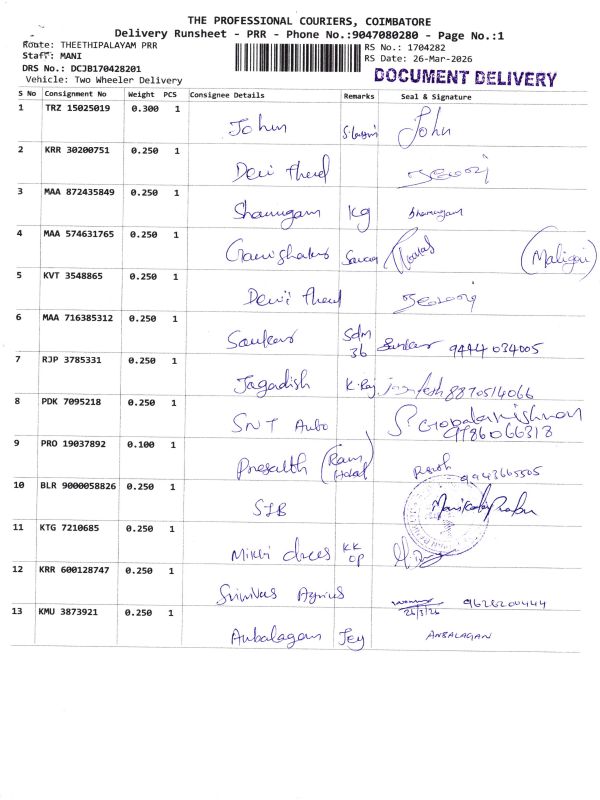 THE PROFESSIONAL COURIERS, COIMBATORE
Delivery Runsheet - PRR - Phone No.:9047080280 - Page No.:1
Route: THEETHIPALAYAM PRR
Staff: MANI
DRS No.: DCJB170428201
Vehicle: Two Wheeler Delivery
RS No.: 1704282
RS Date: 26-Mar-2026
DOCUMENT DELIVERY
S No Consignment No Weight PCS Consignee Details Remarks Seal & Signature
1 TRZ 15025019 0.300 1 John John
2 KRR 30200751 0.250 1 Devi
3 MAA 872435849 0.250 1 Shanmugam Kg Shanmugam
4 MAA 574631765 0.250 1 (Maligai)
5 KVT 3548865 0.250 1 Devi
6 MAA 716385312 0.250 1 Sankar Sdm 36 Sankar 9444 034005
7 RJP 3785331 0.250 1 Jagadish K.Raj 8870514066
8 PDK 7095218 0.250 1 SNT Auto S. Gopalakrishnan 9786066318
9 PRO 19037892 0.100 1 Prasanth (Ram Hotel) 9943665505
10 BLR 9000058826 0.250 1 SIB
11 KTG 7210685 0.250 1 KK OP
12 KRR 600128747 0.250 1 Srinivas 26/3/26 9628200444
13 KMU 3873921 0.250 1 Anbalagan Jey ANBALAGAN